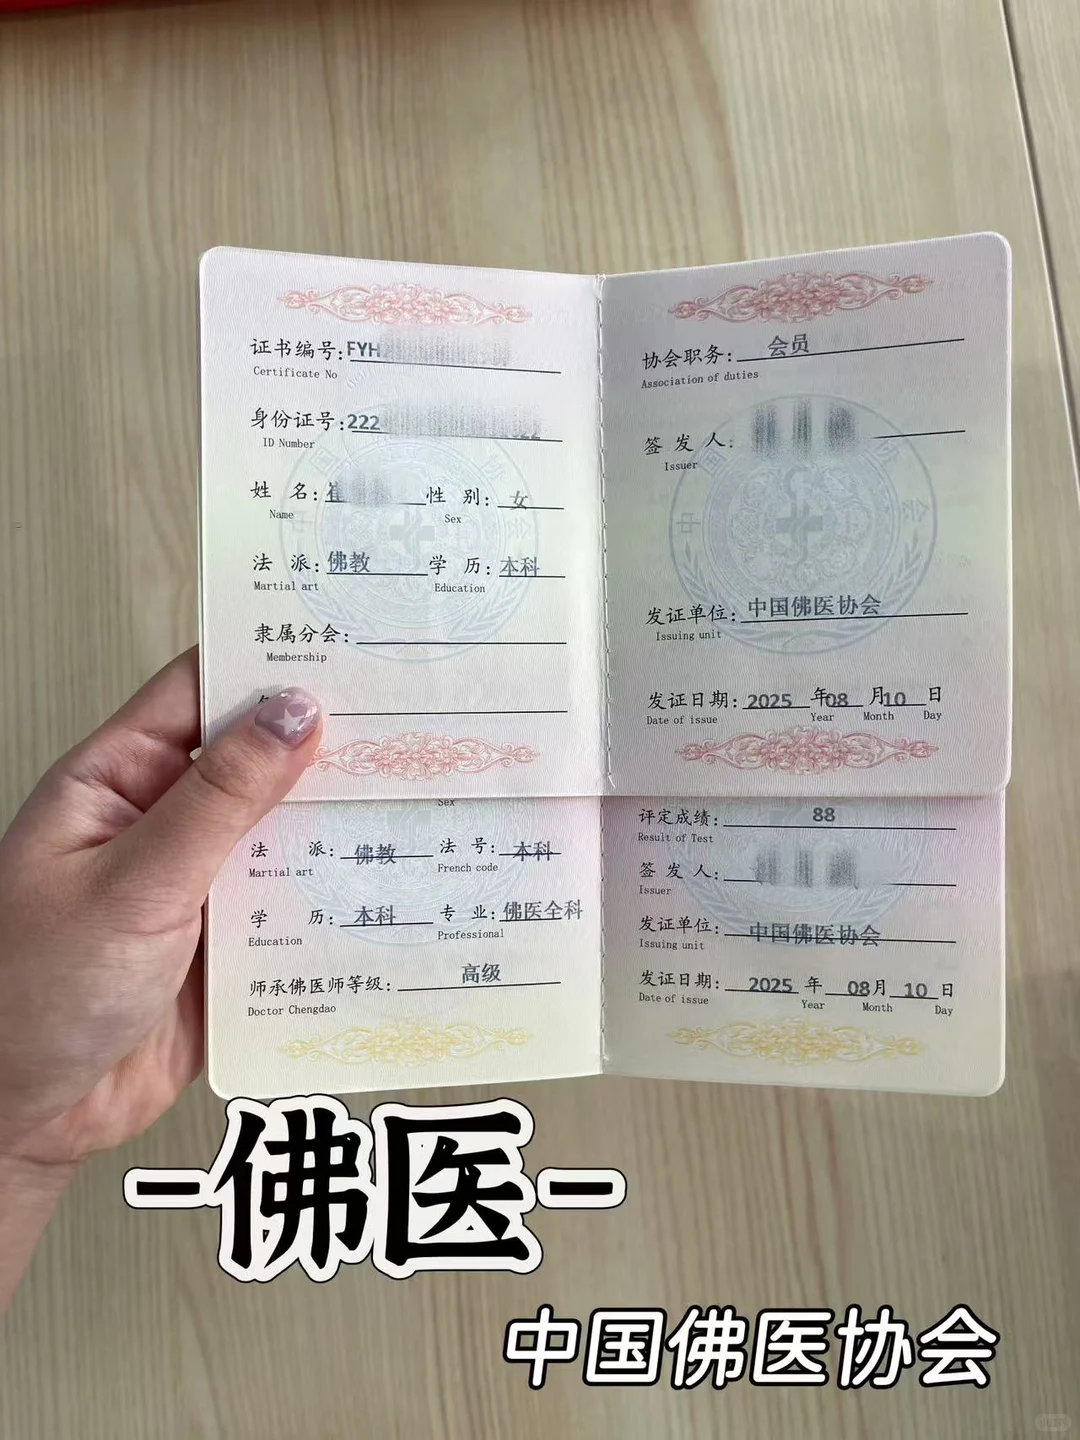 证书编号:FYH
Certificate No
身份证号:222
ID Number
姓 名:崔 性 别: 女
Name Sex
法 派:佛教 学 历: 本科
Martial art Education
隶属分会:
Membership
协会职务: 会员
Association of duties
签 发 人:
Issuer
发证单位: 中国佛医协会
Issuing unit
发证日期: 2025 年 08 月 10 日
Date of issue Year Month Day
Sex
法 派: 佛教 法 号: 本科
Martial art French code
学 历: 本科 专 业: 佛医全科
Education Professional
师承佛医师等级: 高级
Doctor Chengdao
评定成绩: 88
Result of Test
签 发 人:
Issuer
发证单位: 中国佛医协会
Issuing unit
发证日期: 2025 年 08 月 10 日
Date of issue Year Month Day
-佛医-
中国佛医协会